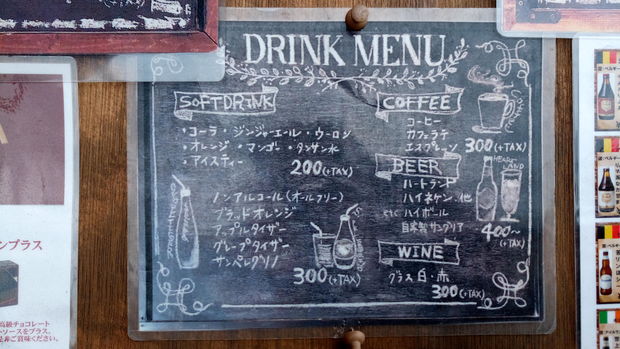 (+TAX)
DRINK MENU
SOFTDRINK
・コーラ・ジンジャーエール・ウーロン
・オレンジ・マンゴー・タンサン水
・アイスティー
200(+TAX)
ノンアルコール(オールフリー)
ブラッドオレンジ
アップルタイザー
グレープタイザー
サンペレグリノ
300(+TAX)
COFFEE
コーヒー
カフェラテ
エスプレーソ
300(+TAX)
BEER
HEART LAND
ハートランド
ハイネケン.他
etc ハイボール
自家製サングリア
400〜
(+TAX)
WINE
グラス 白・赤
300(+TAX)
ンプラス
高級チョコレート
ソースをプラス。
是非ご賞味ください。